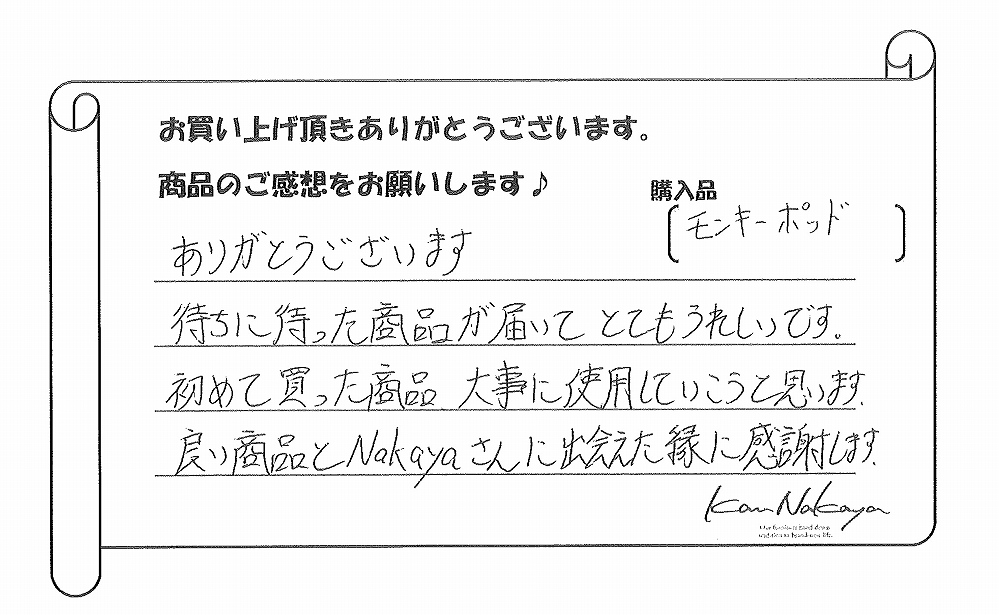 お買い上げ頂きありがとうございます。
商品のご感想をお願いします♪
購入品
モンキーポッド
ありがとうございます
待ちに待った商品が届いてとてもうれしいです。
初めて買った商品 大事に使用していこうと思います.
良い商品とNakayaさんに出会えた縁に感謝します.
Kan Nakaya